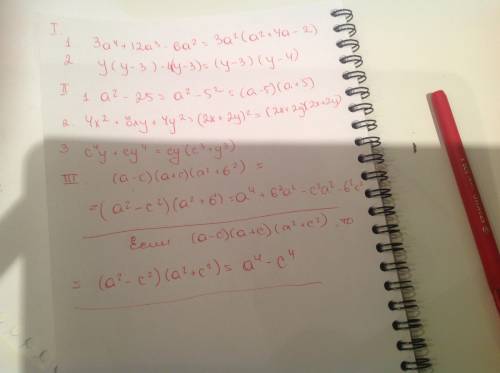 I.
1 3a⁴ + 12a³ - 6a² = 3a²(a² + 4a - 2)
2 y(y-3) - 4(y-3) = (y-3)(y-4)
II
1 a² - 25 = a² - 5² = (a-5)(a+5)
2. 4x² + 8xy + 4y² = (2x+2y)² = (2x+2y)(2x+2y)
3 c⁴y + cy⁴ = cy(c³+y³)
III (a-c)(a+c)(a²+b²) =
= (a²-c²)(a²+b²) = a⁴ + b²a² - c²a² - b²c²
Если (a-c)(a+c)(a²+c²), то
= (a²-c²)(a²+c²) = a⁴ - c⁴